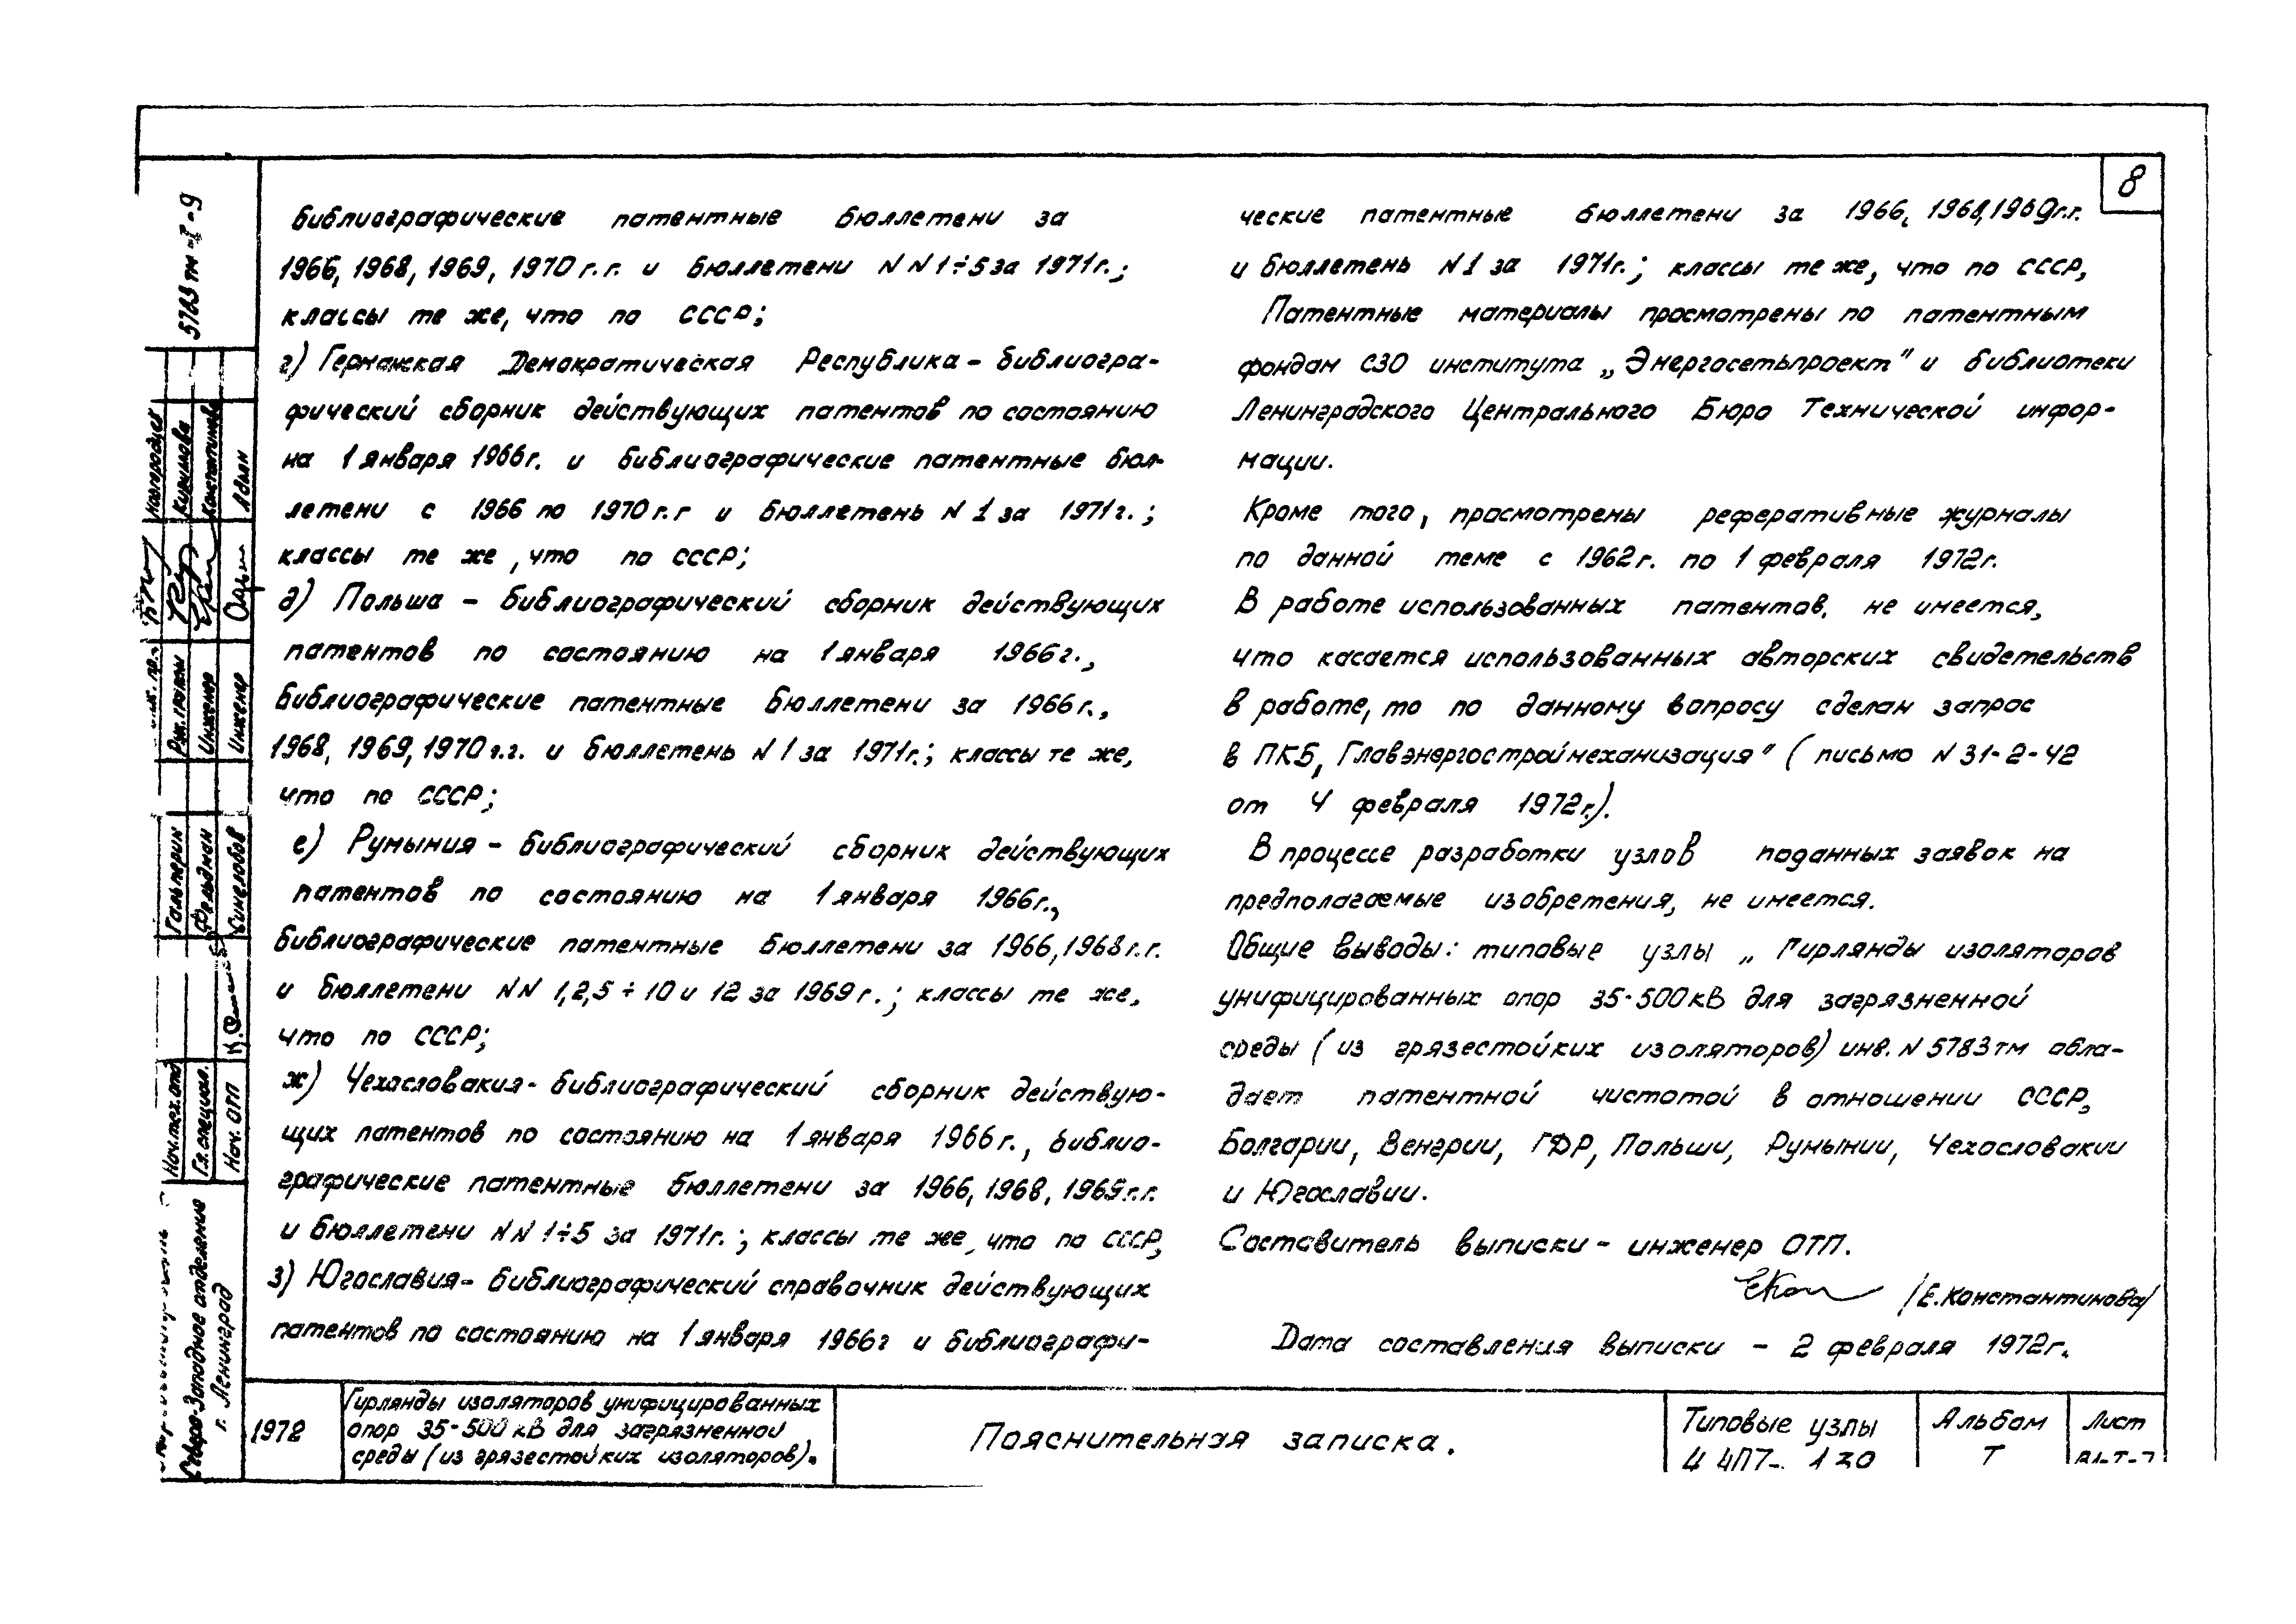 8
библиографические патентные бюллетени за
1966, 1968, 1969, 1970 г.г. и бюллетени NN 1÷5 за 1971г.;
классы те же, что по СССР;
г) Германская Демократическая Республика - библиогра-
фический сборник действующих патентов по состоянию
на 1 января 1966г. и библиографические патентные бюл-
летени с 1966 по 1970 г.г и бюллетень N 1 за 1971г.;
классы те же, что по СССР;
д) Польша - библиографический сборник действующих
патентов по состоянию на 1 января 1966г.,
библиографические патентные бюллетени за 1966г.,
1968, 1969, 1970 г.г. и бюллетень N 1 за 1971г.; классы те же,
что по СССР;
е) Румыния - библиографический сборник действующих
патентов по состоянию на 1 января 1966г.,
библиографические патентные бюллетени за 1966, 1968 г.г.
и бюллетени NN 1,2,5 ÷ 10 и 12 за 1969 г.; классы те же,
что по СССР;
ж) Чехословакия - библиографический сборник действую-
щих патентов по состоянию на 1 января 1966г., библио-
графические патентные бюллетени за 1966, 1968, 1969г.г.
и бюллетени NN 1÷5 за 1971г.; классы те же, что по СССР,
з) Югославия - библиографический справочник действующих
патентов по состоянию на 1 января 1966г и библиографи-
ческие патентные бюллетени за 1966, 1968, 1969г.г.
и бюллетень N 1 за 1971г.; классы те же, что по СССР,
Патентные материалы просмотрены по патентным
фондам СЗО института „Энергосетьпроект" и библиотеки
Ленинградского Центрального Бюро Технической инфор-
мации.
Кроме того, просмотрены реферативные журналы
по данной теме с 1962г. по 1 февраля 1972г.
В работе использованных патентов. не имеется,
что касается использованных авторских свидетельств
в работе, то по данному вопросу сделан запрос
в ПКБ, Главэнергостроймеханизация" (письмо N 31-2-42
от 4 февраля 1972г.).
В процессе разработки узлов поданных заявок на
предполагаемые изобретения, не имеется.
Общие выводы: типовые узлы „Гирлянды изоляторов
унифицированных опор 35-500 кВ для загрязненной
среды (из грязестойких изоляторов) инв. N 5783тм обла-
дает патентной чистотой в отношении СССР,
Болгарии, Венгрии, ГДР, Польши, Румынии, Чехословакии
и Югославии.
Составитель выписки - инженер ОТП.
/Е.Константинова/
Дата составления выписки - 2 февраля 1972г.
5783 тм-I-9
Новгородцев
Кириллова
Константинова
Адьян
Рук. группы
Инженер
Инженер
Гальперин
Фельдман
Синелобов
Нач.тех.отд
Гл. специал.
Нач. ОТП
Северо-Западное отделение
г. Ленинград
1972
Гирлянды изоляторов унифицированных
опор 35-500 кВ для загрязненной
среды (из грязестойких изоляторов).
Пояснительная записка.
Типовые узлы
Альбом
I
Лист